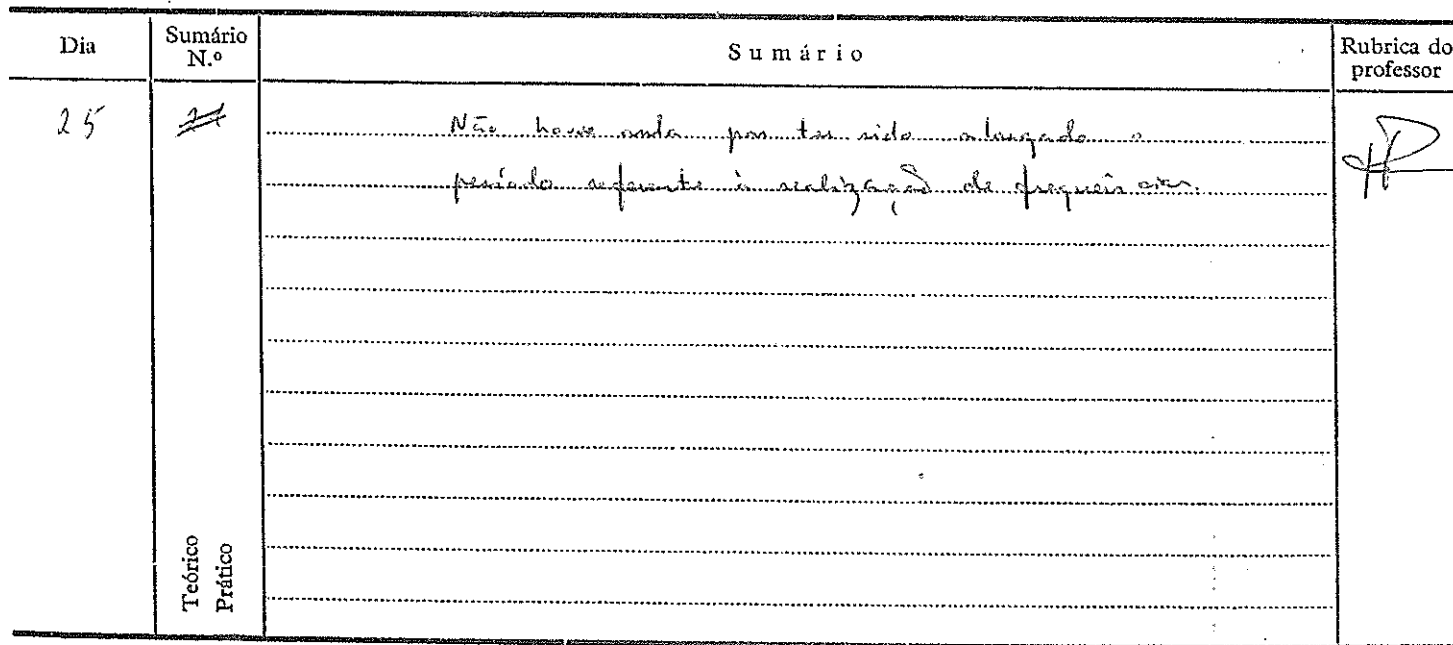 Dia
Sumário N.º
Sumário
Rubrica do professor
25
Não houve aula por ter sido alargado o
período referente à realização de frequências.
Teórico
Prático